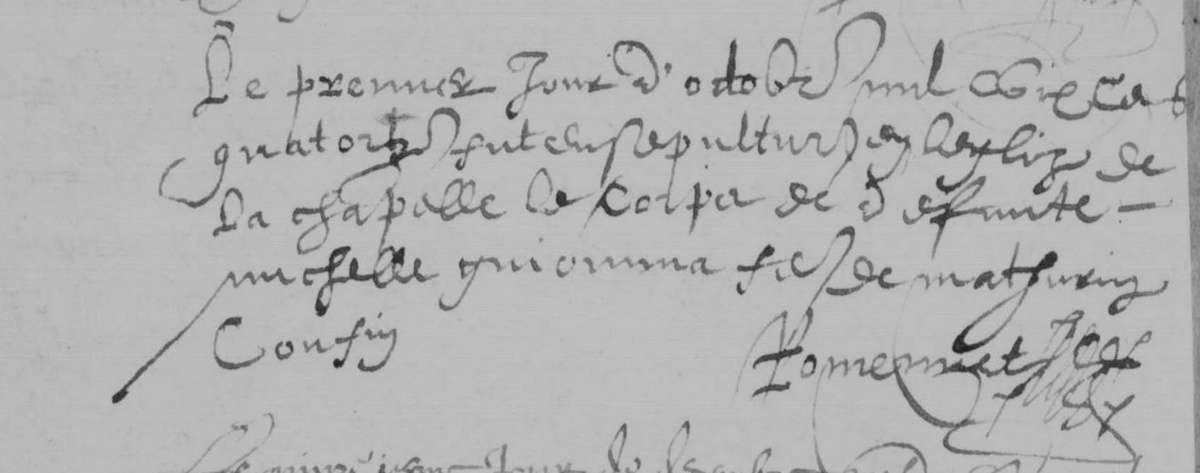 Le premier Jour d'octobre mil six cens
quatorze fut ensepulture en leglize de
la chapelle le corps de defunte
michelle guiomma fe de mathurin
Cousin